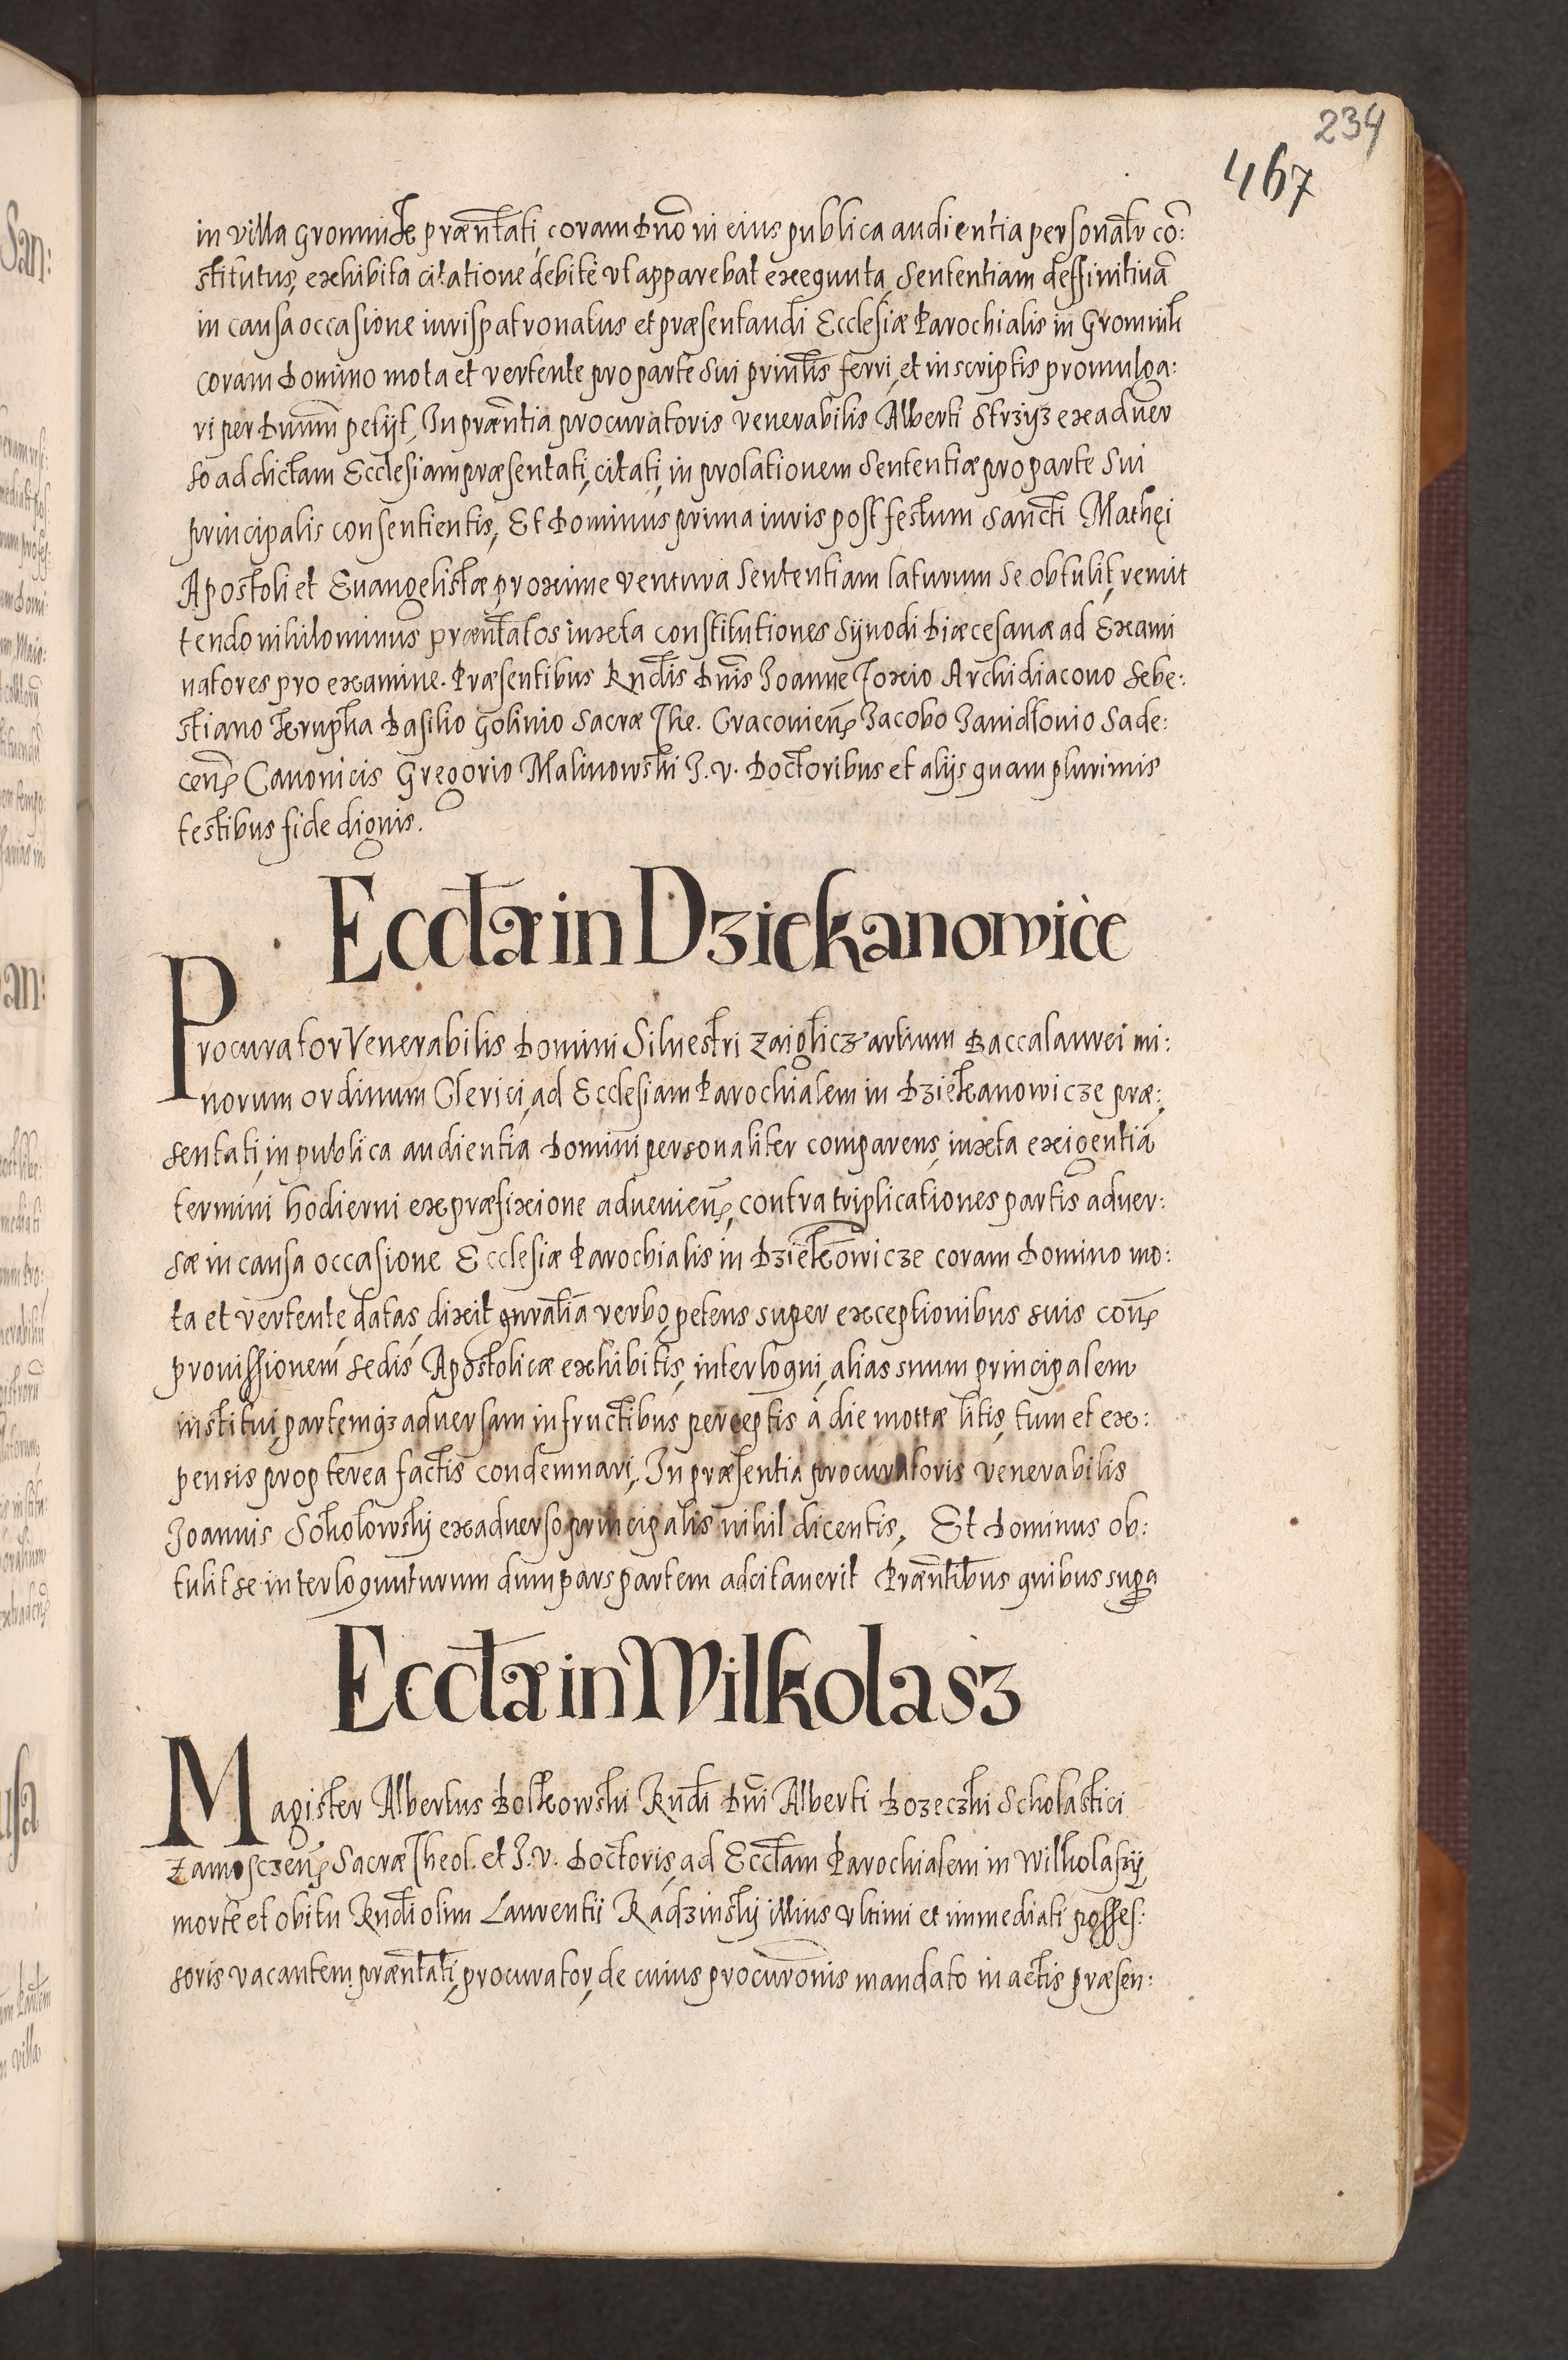 234
467
in villa Gromnik præntati, coram Dno in eius publica audientia personalr cō:
stitutus, exhibita citatione debite vt apparebat exequuta, Sententiam deffinitiuā
in causa occasione iurispatronatus et præsentandi Ecclesiæ Parochialis in Gromnik
coram Domino mota et vertente pro parte Sui prinlis ferri, et in scriptis promulga:
ri per Dnum petijt, In præntia procuratoris venerabilis Alberti Strzyz ex aduer
so ad dictam Ecclesiam præsentati, citati, in prolationem Sententiæ pro parte Sui
principalis consentientis, Et Dominus prima iuris post festum Sancti Mathęi
Apostoli et Euangelistæ proxime ventura Sententiam laturum se obtulit, remit
tendo nihilominus præntatos iuxta constitutiones Synodi Diæcesanæ ad Exami
natores pro examine. Præsentibus Rndis Dnis Joanne Foxio Archidiacono Sebe:
stiano Krupka Basilio Golinio Sacræ The. Cracouien Jacobo Janidlouio Sade:
cen Canonicis Gregorio Malinowski J. v. Doctoribus et alijs quam plurimis
testibus fide dignis.
Ecctæ in Dziekanowice
Procurator Venerabilis Domini Siluestri Zaiglicz artium Baccalaurei mi:
norum ordinum Clerici, ad Ecclesiam Parochialem in Dziekanowicze præ:
sentati, in publica audientia Domini personaliter comparens, iuxta exigentiā
termini hodierni ex præfixione aduenien, contra triplicationes partis aduer:
sæ in causa occasione Ecclesiæ Parochialis in Dziekowicze coram Domino mo:
ta et vertente datas, dixit gnralia verbo, petens super exceptionibus suis con
prouissionem sedis Apostolicæ exhibitis, interloqui, alias suum principalem
institui, partemqz aduersam in fructibus perceptis à die mottæ litis, tum et ex:
pensis propterea factis condemnari, In præsentia procuratoris venerabilis
Joannis Sokolowskij ex aduerso principalis nihil dicentis, Et Dominus ob:
tulit se interloquuturum dum pars partem adcitauerit Præntibus quibus supa
Ecctæ in Wilkolasz
Magister Albertus Bolkowski Rndi Dni Alberti Bozeczki Scholastici
Zamosczen Sacræ Theol. et J. v. Doctoris, ad Ecctam Parochialem in Wilkolaszÿ,
morte et obitu Rndi olim Laurentii Radzinskij illius vltimi et immediati posses:
soris vacantem præntati, procurator, de cuius procuronis mandato in actis præsen: